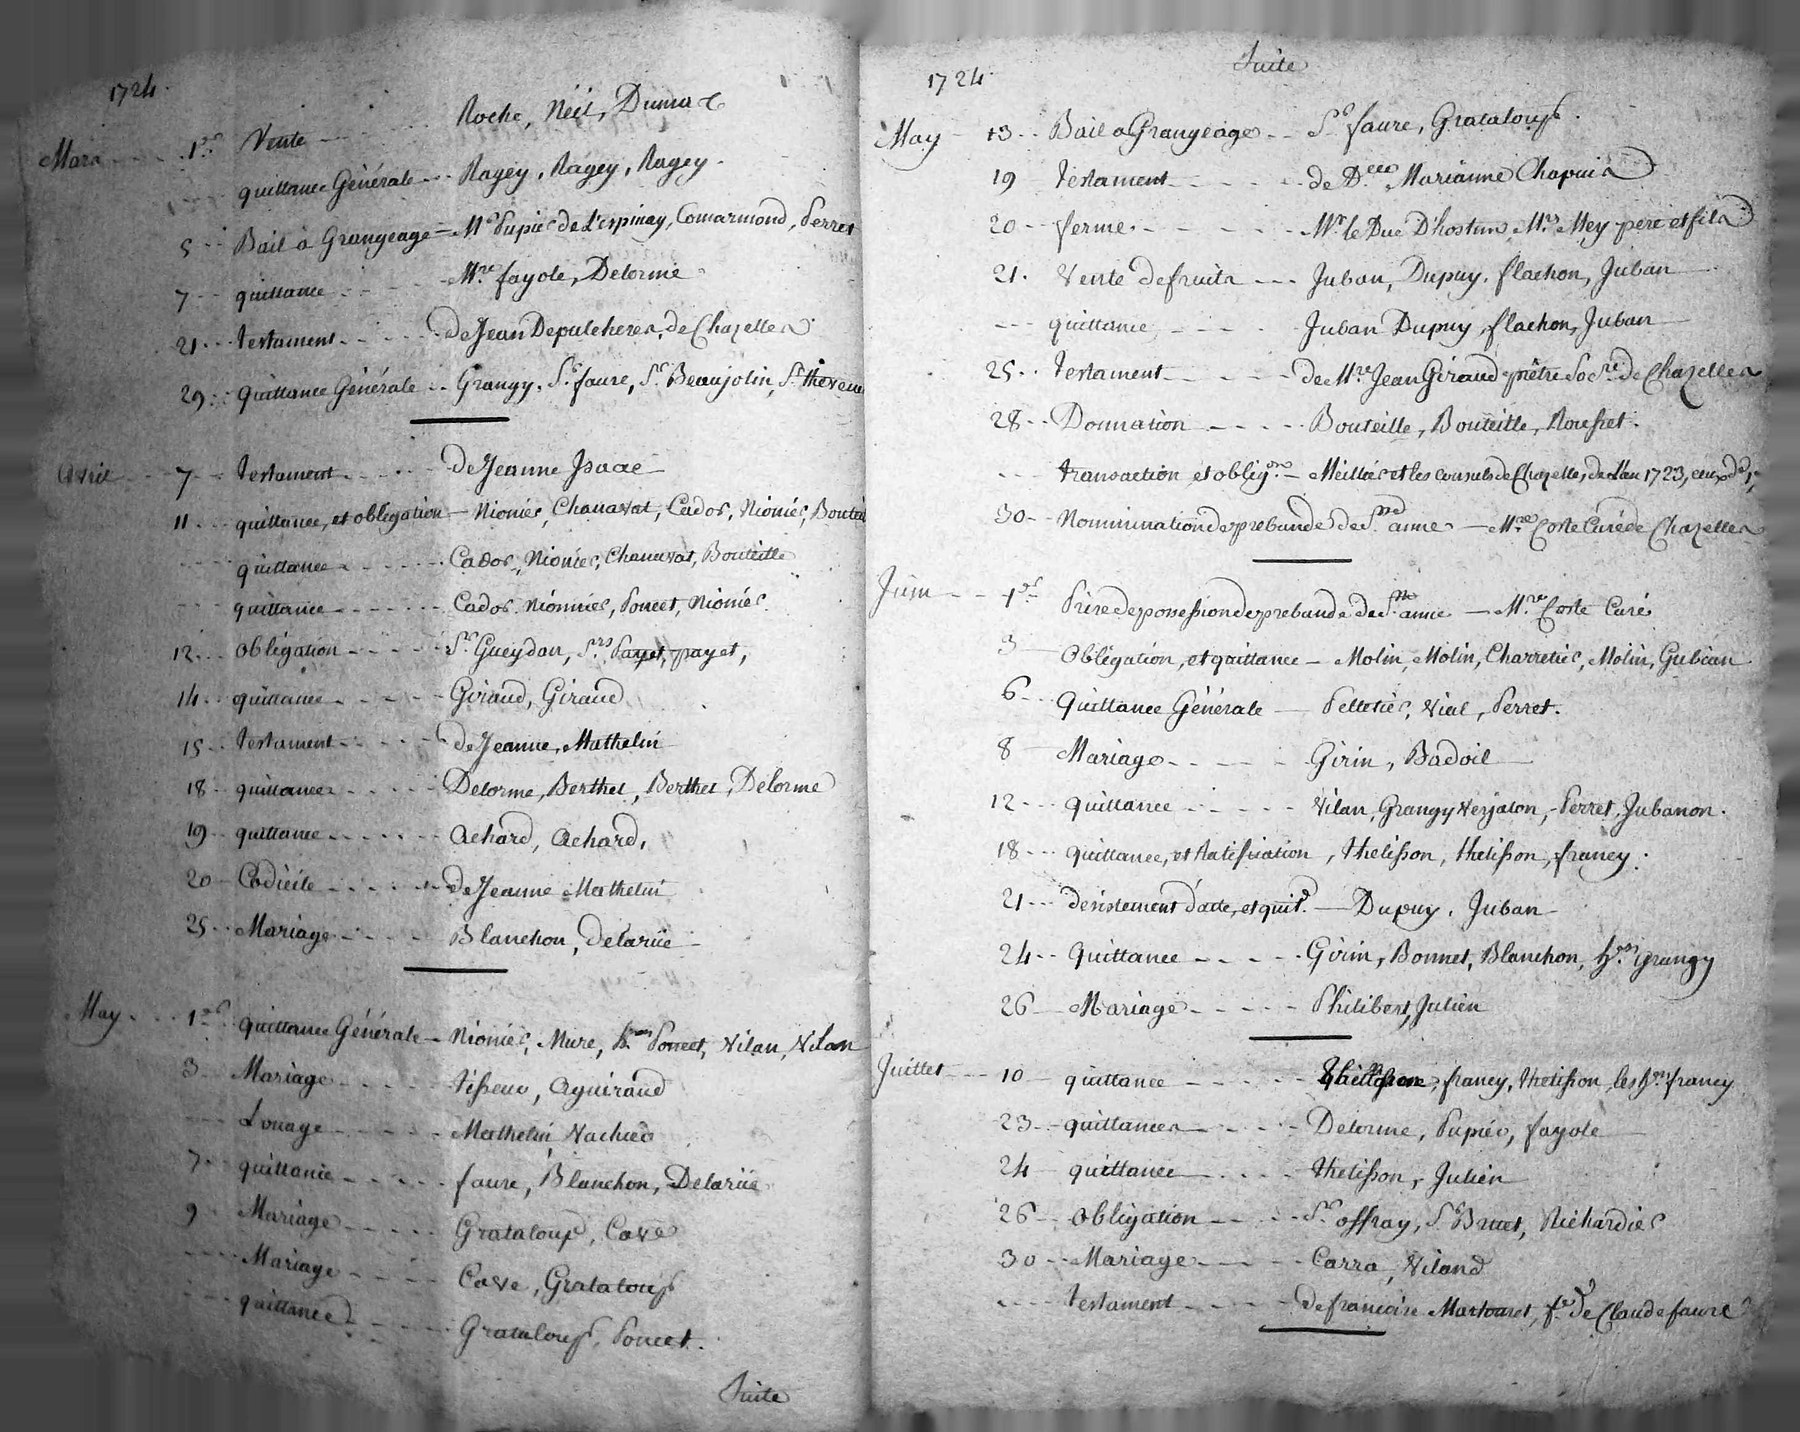 1724.
Mars - - - 1er Vente - - - Roche, Néel, Dumas
- - - quittance Générale - - - Ragey, Ragey, Ragey.
5 - - Bail à Grangeage = Mr Pupier de L'espinay, Comarmond, Perret
7 - - quittance - - - Mre fayole, Delorme
21 - - testament - - - de Jean Depulcheres, de Chazelles
29 - - quittance Générale - - Grangy, Sr faure, Sr Beaujolin, Sr
Avril - - 7 - - testament - - - de Jeanne Isaac
11 - - quittance, et obligation - Nionier, Chanavat, Cador, Nionier,
- - - quittance - - - Cador, Nionier, Chanavat, Bouteille
- - - quittance - - - Cador, Nionnier, Poncet, Nionier
12 - - obligation - - - Sr Gueydon, Srs Payet, payet,
14 - - quittance - - - Giraud, Giraud
15 - - testament - - - de Jeanne Mathelin
18 - - quittances - - - Delorme, Berthet, Berthet, Delorme
19 - - quittance - - - Achard, Achard,
20 - Codicile - - - de Jeanne Mathelin
25 - - Mariage - - - Blanchon, delarüe
May - - - 1er quittance Générale - Nionier, Mure, hers Poncet, Vilan, Vilan
3 - Mariage - - - tisseur, Aguiraud
- - Louage - - - Mathelin, Vachier
7 - - quittance - - - faure, Blanchon, Delarüe
9 - - Mariage - - - Grataloup, Cave
- - - Mariage - - - Cave, Grataloup
- - - quittance - - - Grataloup, Poncet.
Suite
1724.
Suite
May - 13 - - Bail a Grangeage - - Sr faure, Grataloup.
19 testament - - - de Dlle Marianne Chapuis
20 - - ferme - - - Mr le Duc D'hostun Mrs Mey pere et fils
21. Vente de fruits - - - Juban, Dupuy, flachon, Juban
- - - quittance - - - Juban Dupuy, flachon, Juban
25 - - testament - - - de Mre Jean Giraud prêtre Socre de Chazelles
28 - - Donnation - - - Bouteille, Bouteille,
- - - transaction et oblig.on - et les consuls de Chazelles, de l'an 1723,
30 - - Nommination de prebande de Ste anne - Mre Coste Curé de Chazelles
Juin - - 1er Prise de possession de prebande de Ste anne - Mre Coste Curé
3 - Obligation, et quittance - Molin, Molin, Charretier, Molin, Gubian
6 - - Quittance Générale - Pelletier, Vial, Perret.
8 - Mariage - - - Girin, Badoil
12 - - - quittance - - - Vilan, Grangy Verjaton, Perret, Jubanon.
18 - - - quittance, et Ratification, thelisson, thelisson, francy.
21 - - - desistement d'acte, et quit.e - Dupuy, Juban
24 - - Quittance - - - Girin, Bonnet, Blanchon, hers grangy
26 - Mariage - - - Philibert, Julien
Juillet - - 10 - quittance - - - francy, thelisson, les hers francy
23 - - quittances - - - Delorme, Pupier, fayole
24 - quittance - - - thelisson, Julien
26 - - obligation - - - Sr offray, Sr Brun, Richardier
30 - - Mariage - - - Carra, Viland
- - - testament - - - de francoise Martouret, fe de Claude faure